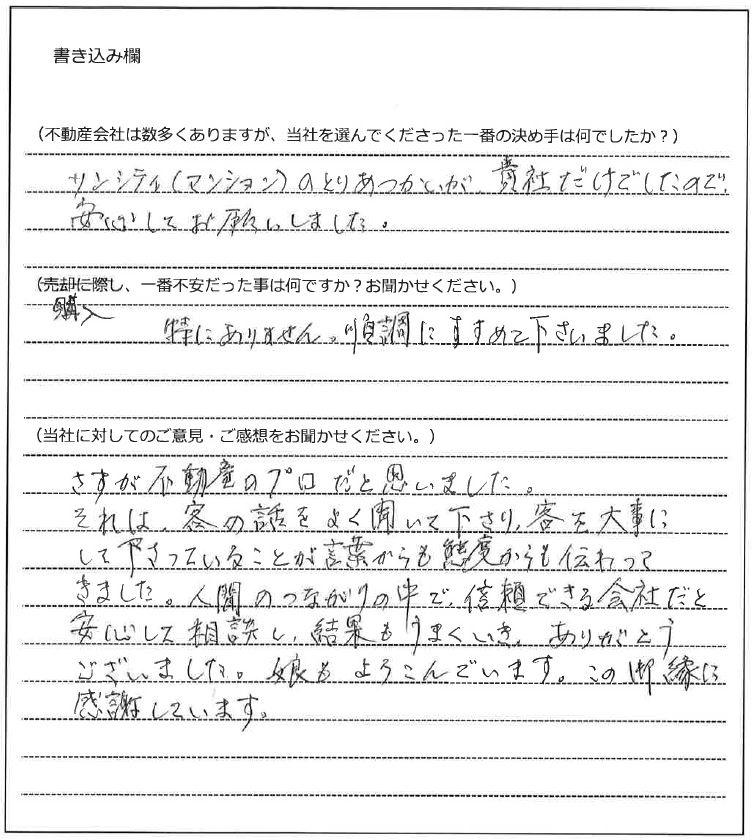 書き込み欄
（不動産会社は数多くありますが、当社を選んでくださった一番の決め手は何でしたか？）
サンシティ(マンション)のとりあつかいが、貴社だけでしたので、
安心してお願いしました。
（売却に際し、一番不安だった事は何ですか？お聞かせください。）
購入
特にありません。順調にすすめて下さいました。
（当社に対してのご意見・ご感想をお聞かせください。）
さすが不動産のプロだと思いました。
それは、客の話をよく聞いて下さり、客を大事に
して下さっていることが言葉からも態度からも伝わって
きました。人間のつながりの中で、信頼できる会社だと
安心して相談し、結果もうまくいき、ありがとう
ございました。娘もよろこんでいます。この御縁に
感謝しています。